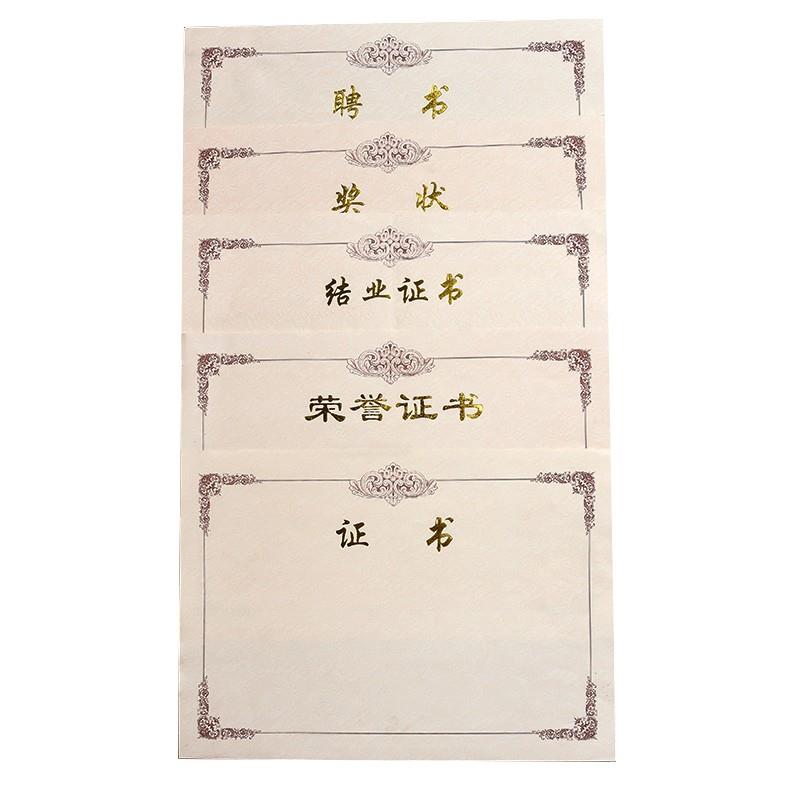 聘书
奖状
结业证书
荣誉证书
证书